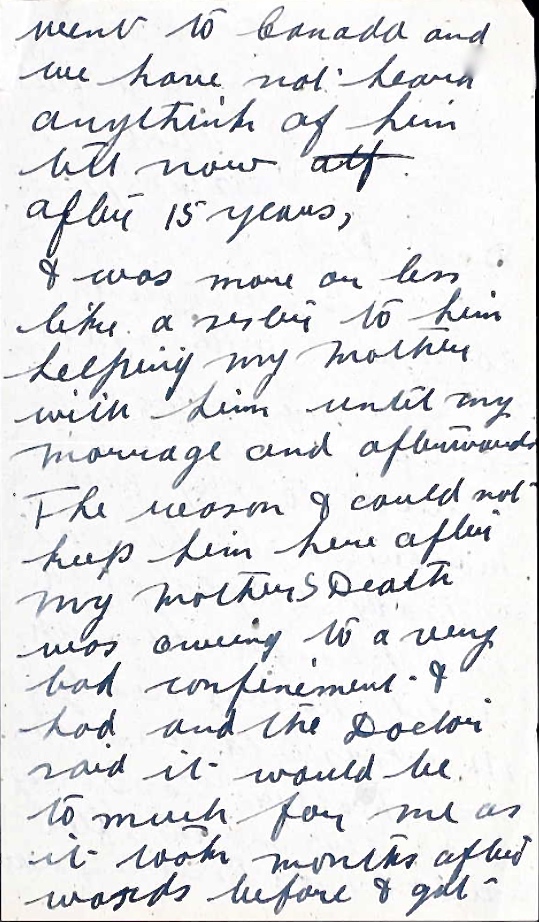 went to Canada and
we have not heard
anythink of him
till now alf
after 15 years,
I was more or less
like a sister to him
helping my mother
with him until my
marriage and afterwards
The reason I could not
keep him here after
my mothers Death
was oweing to a very
bad confinement I
had and the Doctor
said it would be
to much for me as
it took months after
words before I got